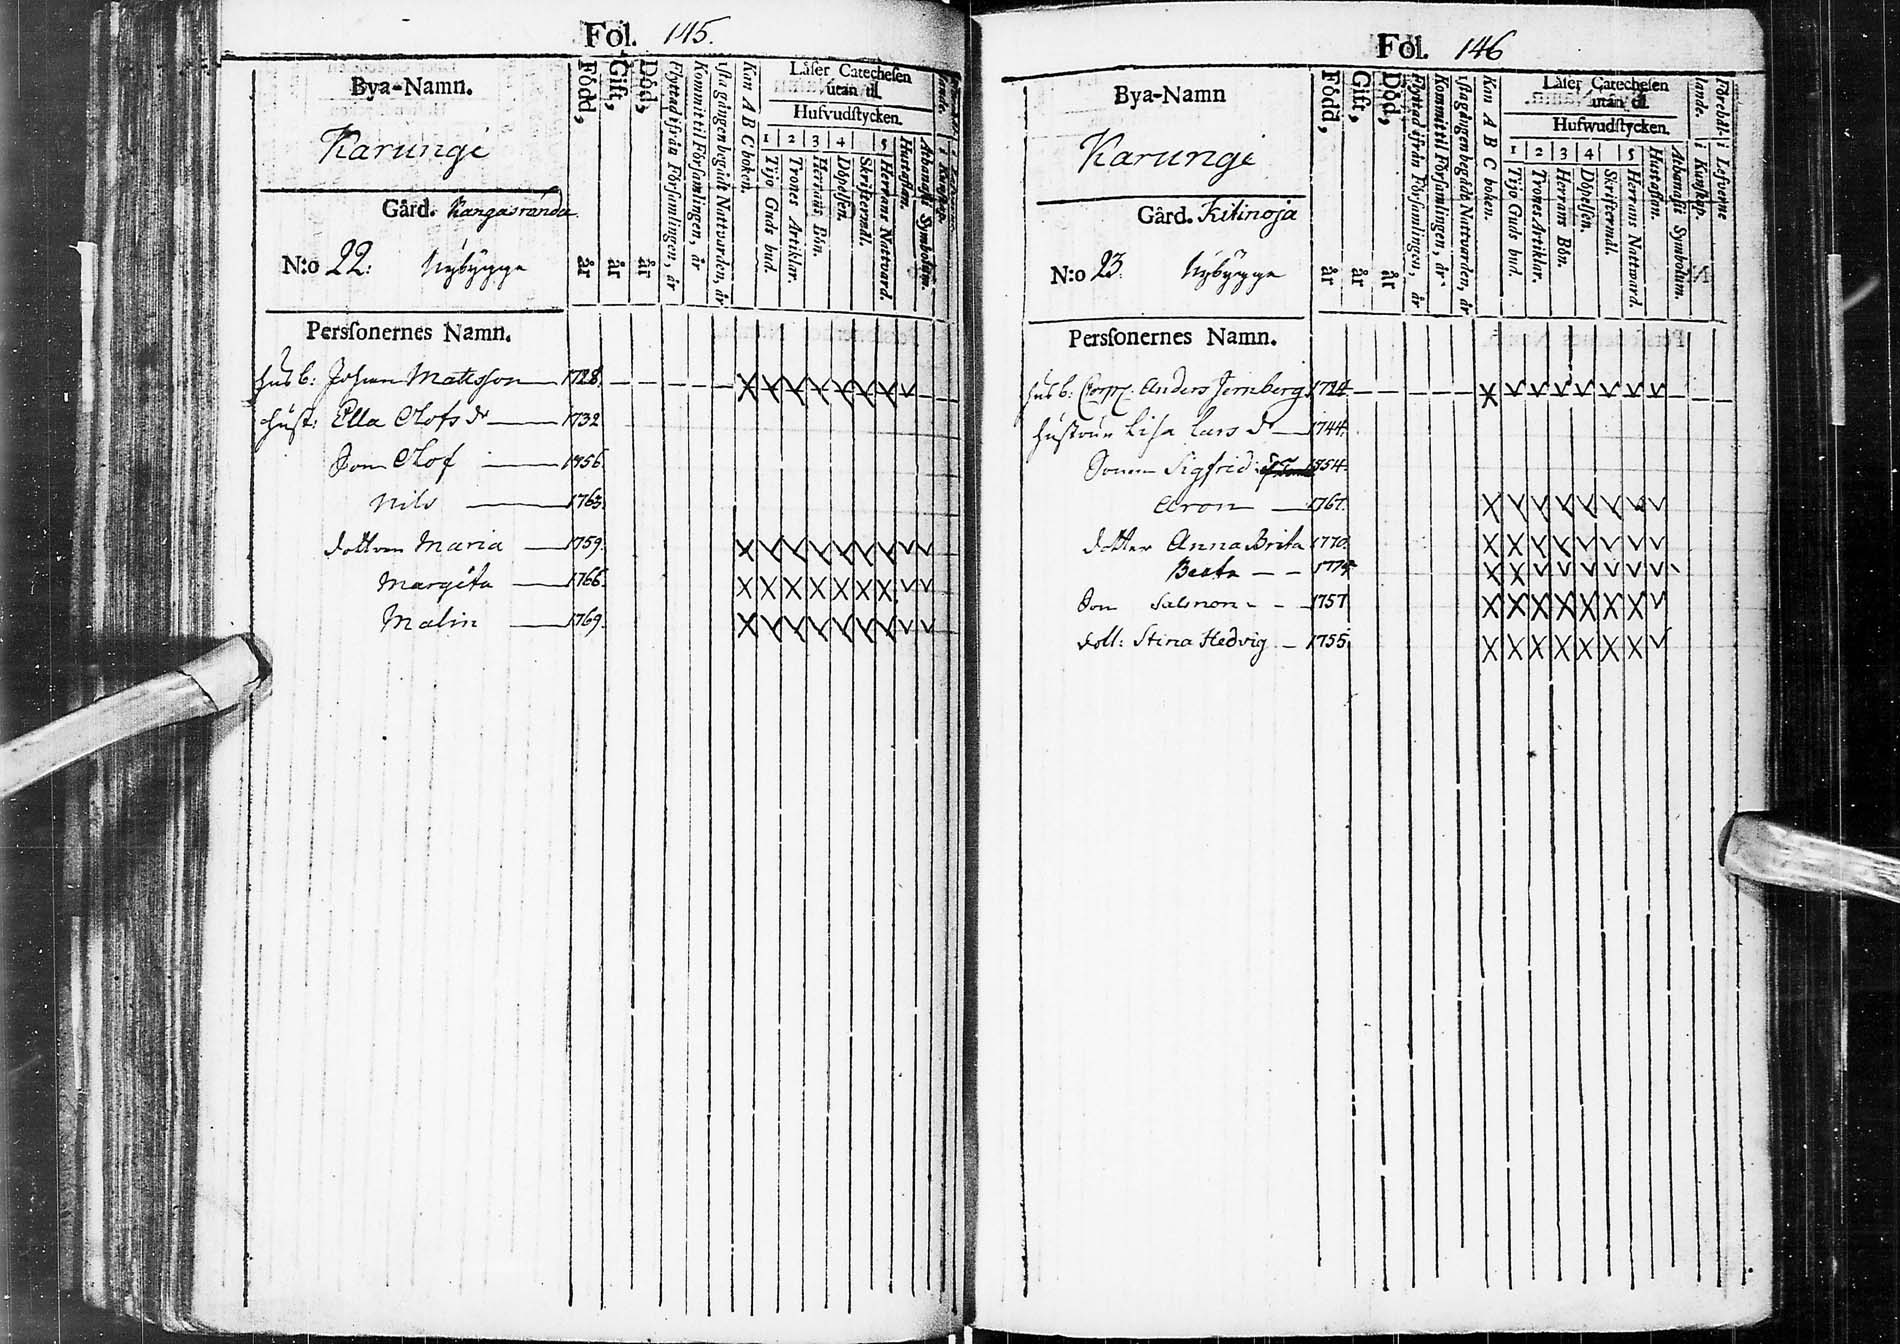 Fol. 145.
Bya-Namn.
Karungi
Gård. Kangasranda
N:o 22: Nybygge
Född, år
Gift, år
Död, år
Flyttad ifrån Församlingen, år
Kommit til Församlingen, år
1sta gången begådt Nattvarden, år
Kan A B C boken.
Låser Catechesen
utan til
Hufvudstycken.
1 2 3 4 5
Tijo Guds bud.
Trones Artiklar.
Herrans Bön.
Döpelsen.
Skriftermål.
Herrans Nattvard.
Hustaflan.
Athanasii Symbolum.
Personernes Namn.
Husb: Johan Matsson 1728.
Hust: Ella Olofs dr 1732
Son Olof 1756.
Nils 1763.
Dottren Maria 1759.
Margeta 1766.
Malin 1769.
Fol. 146
Bya-Namn
Karungi
Gård. Kitinoja
N:o 23. Nybygge
Född, år
Gift, år
Död, år
Flyttad ifrån Församlingen, år
Kommit til Församlingen, år
1sta gången begådt Nattvarden, år
Kan A B C boken.
Låser Catechesen
utan til
Hufwudstycken.
1 2 3 4 5
Tijo Guds bud.
Trones Artiklar.
Herrans Bön.
Döpelsen.
Skriftermål.
Herrans Nattward.
Hustaflan.
Athanasii Symbolum.
Förehål- i Lefverne
lande. i Kunskap.
Personernes Namn.
Husb: Corp. Anders Jernberg 1724
Hustrun Lisa Lars dr 1744.
Sonen Sigfrid 1754.
Aron 1767.
Dotter Anna Brita 1770.
Beata 1774
Son Salmon 1757
Dott: Stina Hedvig 1755.